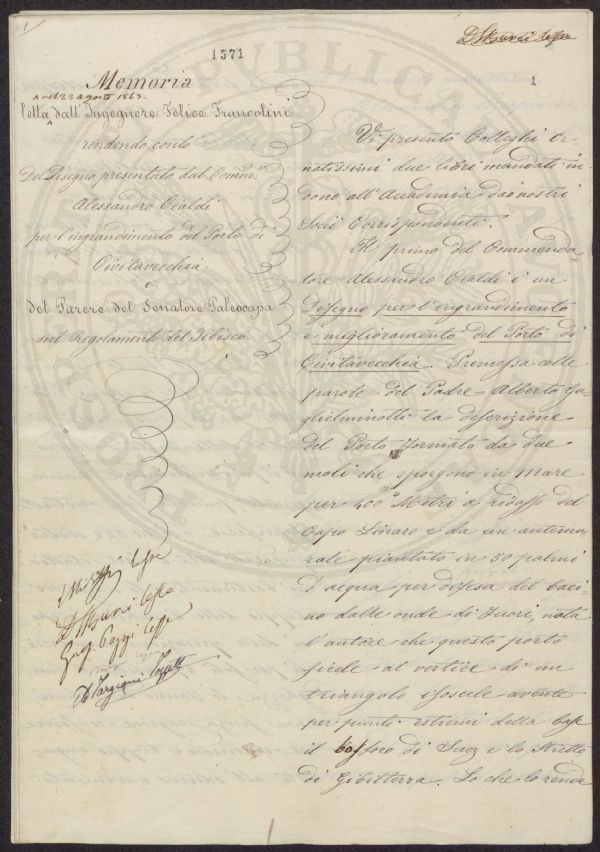 1
1571
1
Memoria
nel 23 agosto 1863.
letta dall'Ingegnere Felice Francolini
rendendo conto
Del Disegno presentato dal Comm.re
Alessandro Cialdi
per l'ingrandimento del Porto di
Civitavecchia
e
del Parere del Senatore Paleocapa
sul Regolamento del Tibisco
Vi presento Colleghi or
natissimi due libri mandati in
dono all'Accademia dai nostri
Socii Corrispondenti.
Il primo del Commenda
tore Alessandro Cialdi è un
Disegno per l'ingrandimento
e miglioramento del Porto di
Civitavecchia. Premessa colle
parole del Padre Alberto Gu
glielmmotti la descrizione
del Porto formato da due
moli che sporgono in mare
per 400 Metri a ridosso del
Capo Linaro e da un antemu
rale piantato in 50 palmi
d'acqua per difesa del baci=
no dalle onde di fuori, nota
l'autore che questo porto
siede al vertice di un
triangolo isoscele avente
per punti estremi della base
il bosforo di Suez e lo Stretto
di Gibilterra. Lo che lo rende
Targioni Tozzetti